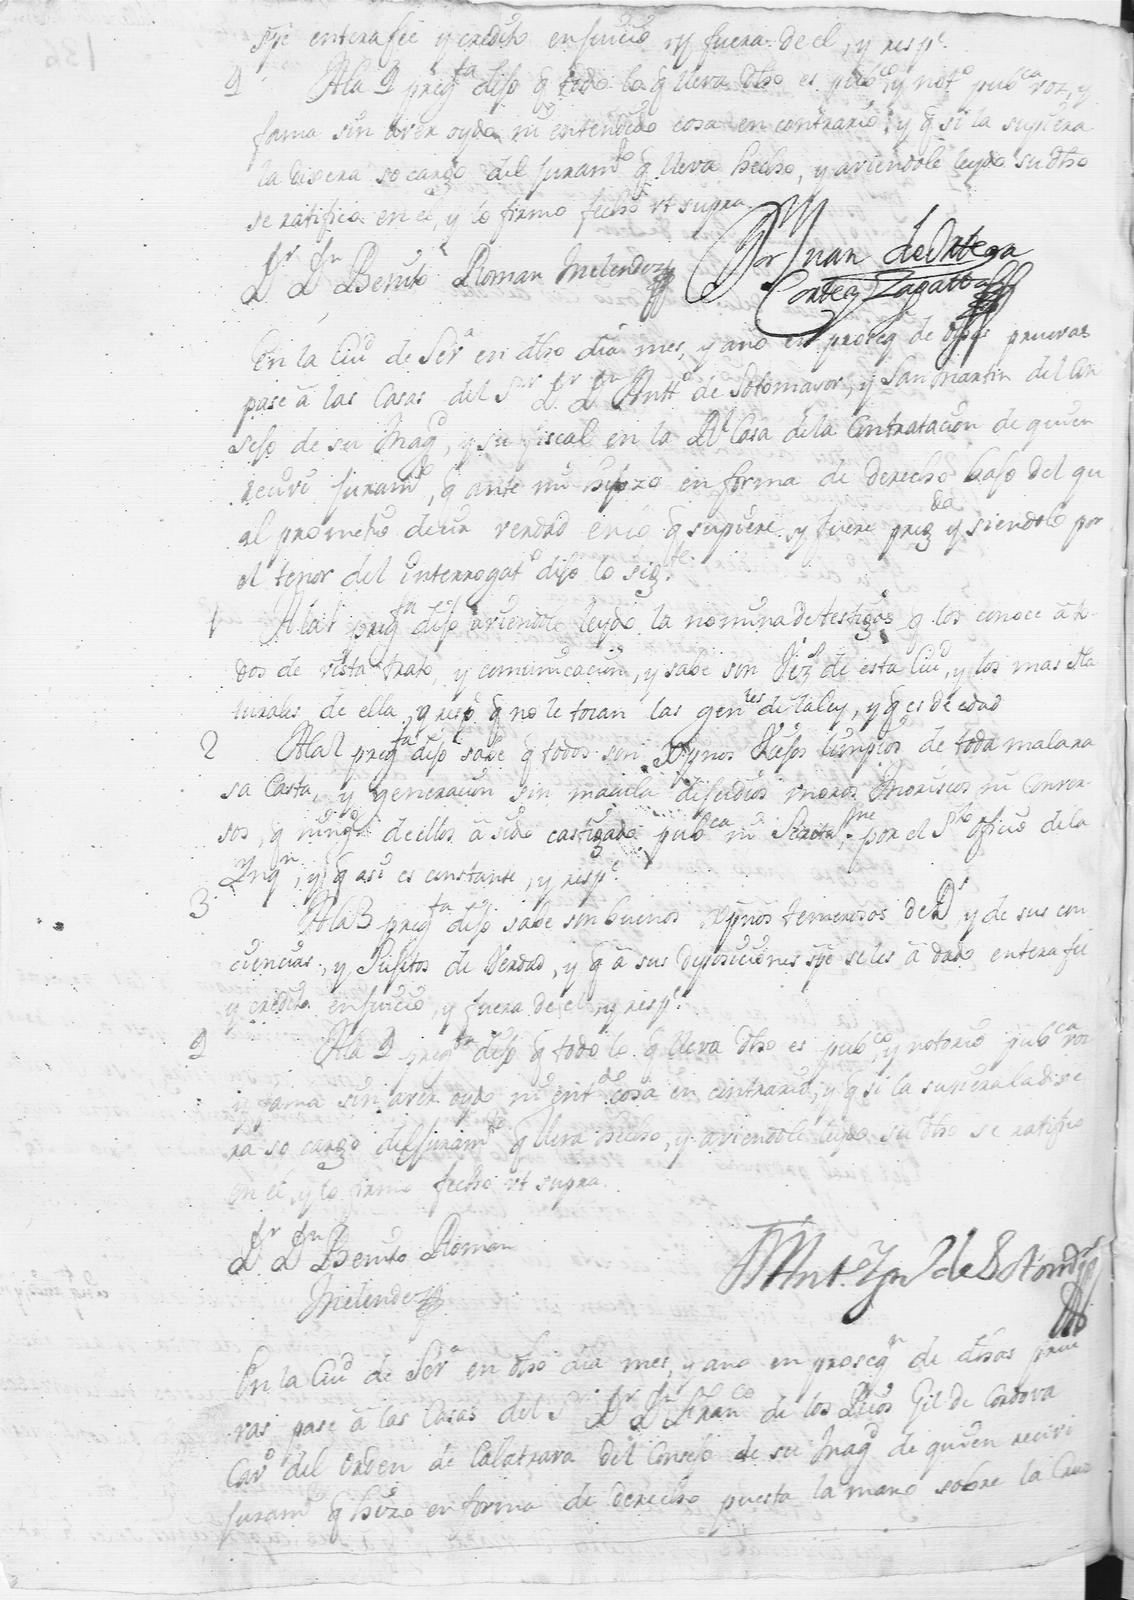 spre entera fee y credito en juicio y fuera de el, y resp.e
4 A la 4 preg.ta dijo q todo lo q lleva dho es pub.co y not.o pub.ca voz, y
fama sin aver oydo ni entendido cosa en contrario, y q si la supiera
la dijera so cargo del juram.to q lleva hecho, y aviendole leydo su dho
se ratifico en el, y lo firmo fecho ut supra.
D.r D.n Benito Roman Melendez
D.or Juan de Ortega
Cortes Zapatta
En la Ciu.d de Sev.a en dho dia mes, y año en proseq.n de dhas pruevas
pase â las Casas del S.r D.r D.n Antt.o de Sotomayor, y San Martin del Con
sejo de su Mag.d, y su fiscal en la R.l Casa de la Contratacion de quien
recivi juram.to, q ante mi hizo en forma de derecho bajo del qu
al prometio decir verdad en lo q supiere, y fuere preg.do y siendolo por
el tenor del interrogat.o dijo lo sig.te
1 A la 1 preg.ta dijo aviendole leydo la nomina de testigos q los conoce a to
dos de vista trato, y comunicacion, y sabe son Vez.s de esta Ciu.d, y los mas Na
turales de ella, y resp.e q no le tocan las gen.les de la ley, y q es de edad
2 A la 2 preg.ta dijo sabe q todos son Xpnos Viejos limpios de toda mala ra
sa Casta, y generacion sin macula de judios moros Moriscos ni Conver
sos, q ning.o de ellos â sido castigado pub.ca ni Secreta.mte por el S.to oficio de la
Ynq.n, y q asi es constante, y resp.e
3 A la 3 preg.ta dijo sabe son buenos Xpnos temerosos de D.s y de sus con
ciencias, y Pusitos de Verdad, y q â sus deposiciones spre se les â dado entera fee
y credito en juicio, y fuera de el, y resp.e
4 A la 4 preg.ta dijo q todo lo q lleva dho es pub.co, y notorio pub.ca voz
y fama sin aver oydo ni ent.do cosa en contrario, y q si la supiera la dije
ra so cargo del juram.to q lleva hecho, y aviendole leydo su dho se ratifico
en el, y lo firmo fecho ut supra.
D.r D.n Benito Roman
Melendez
En la Ciu.d de Sev.a en dho dia mes, y año en proseq.n de dhas prue
vas pase â las Casas del S.r D.r D.n Fran.co de los Rios Gil de Cordova
Cav.o del Orden de Calatrava del Consejo de su Mag.d de quien recivi
juram.to q hizo en forma de derecho puesta la mano sobre la Cruz